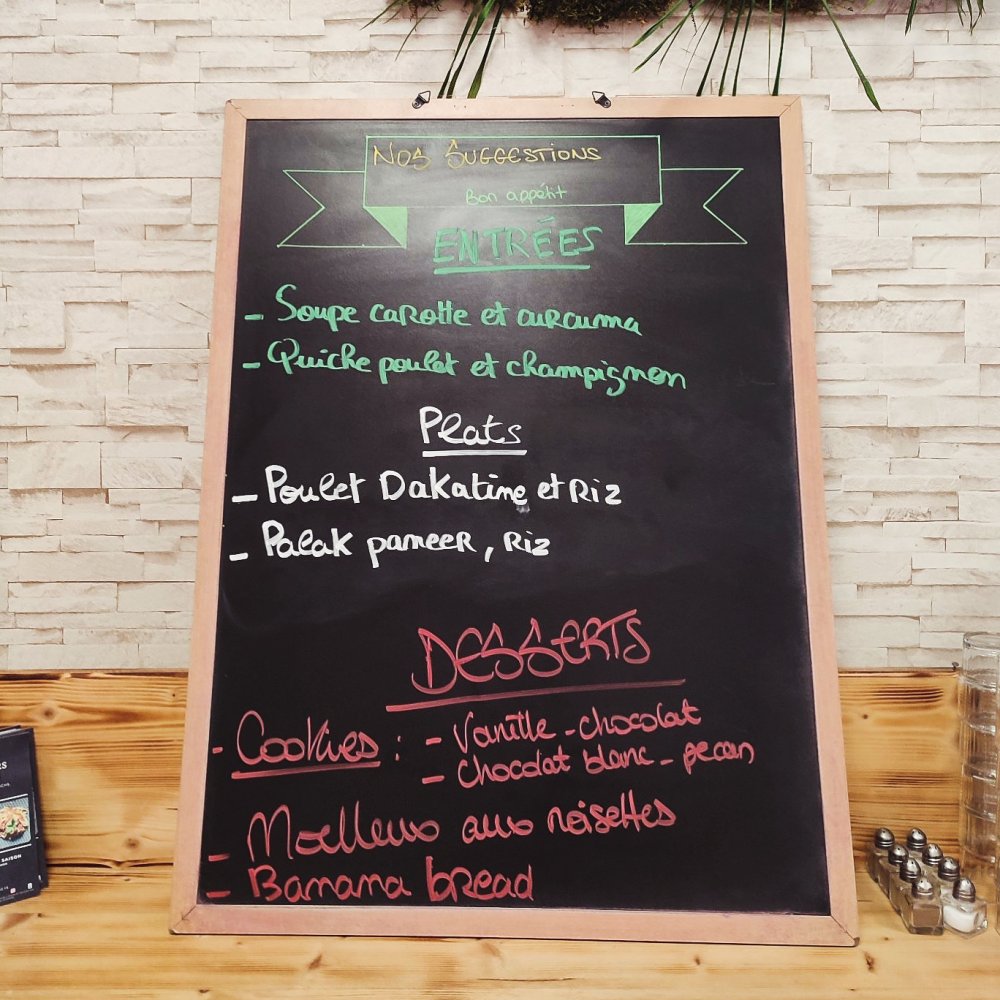 Nos Suggestions
Bon appétit
ENTRÉES
- Soupe carotte et curcuma
- Quiche poulet et champignon
Plats
- Poulet Dakatine et Riz
- Palak paneer, Riz
DESSERTS
- Cookies : - Vanille - chocolat
- chocolat blanc - pecan
- Moelleux aux noisettes
- Banana bread
RS
SAISON